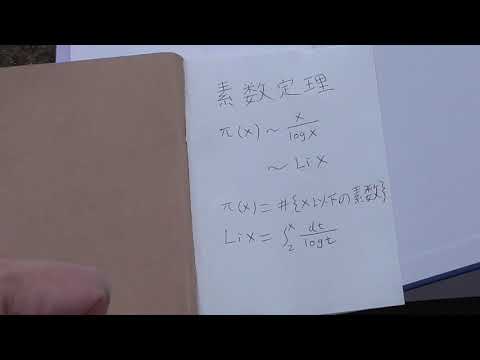 素数定理
π(x) ~ x/log x
~ Li x
π(x) = #{x以下の素数}
Li x = ∫₂ˣ dt/log t